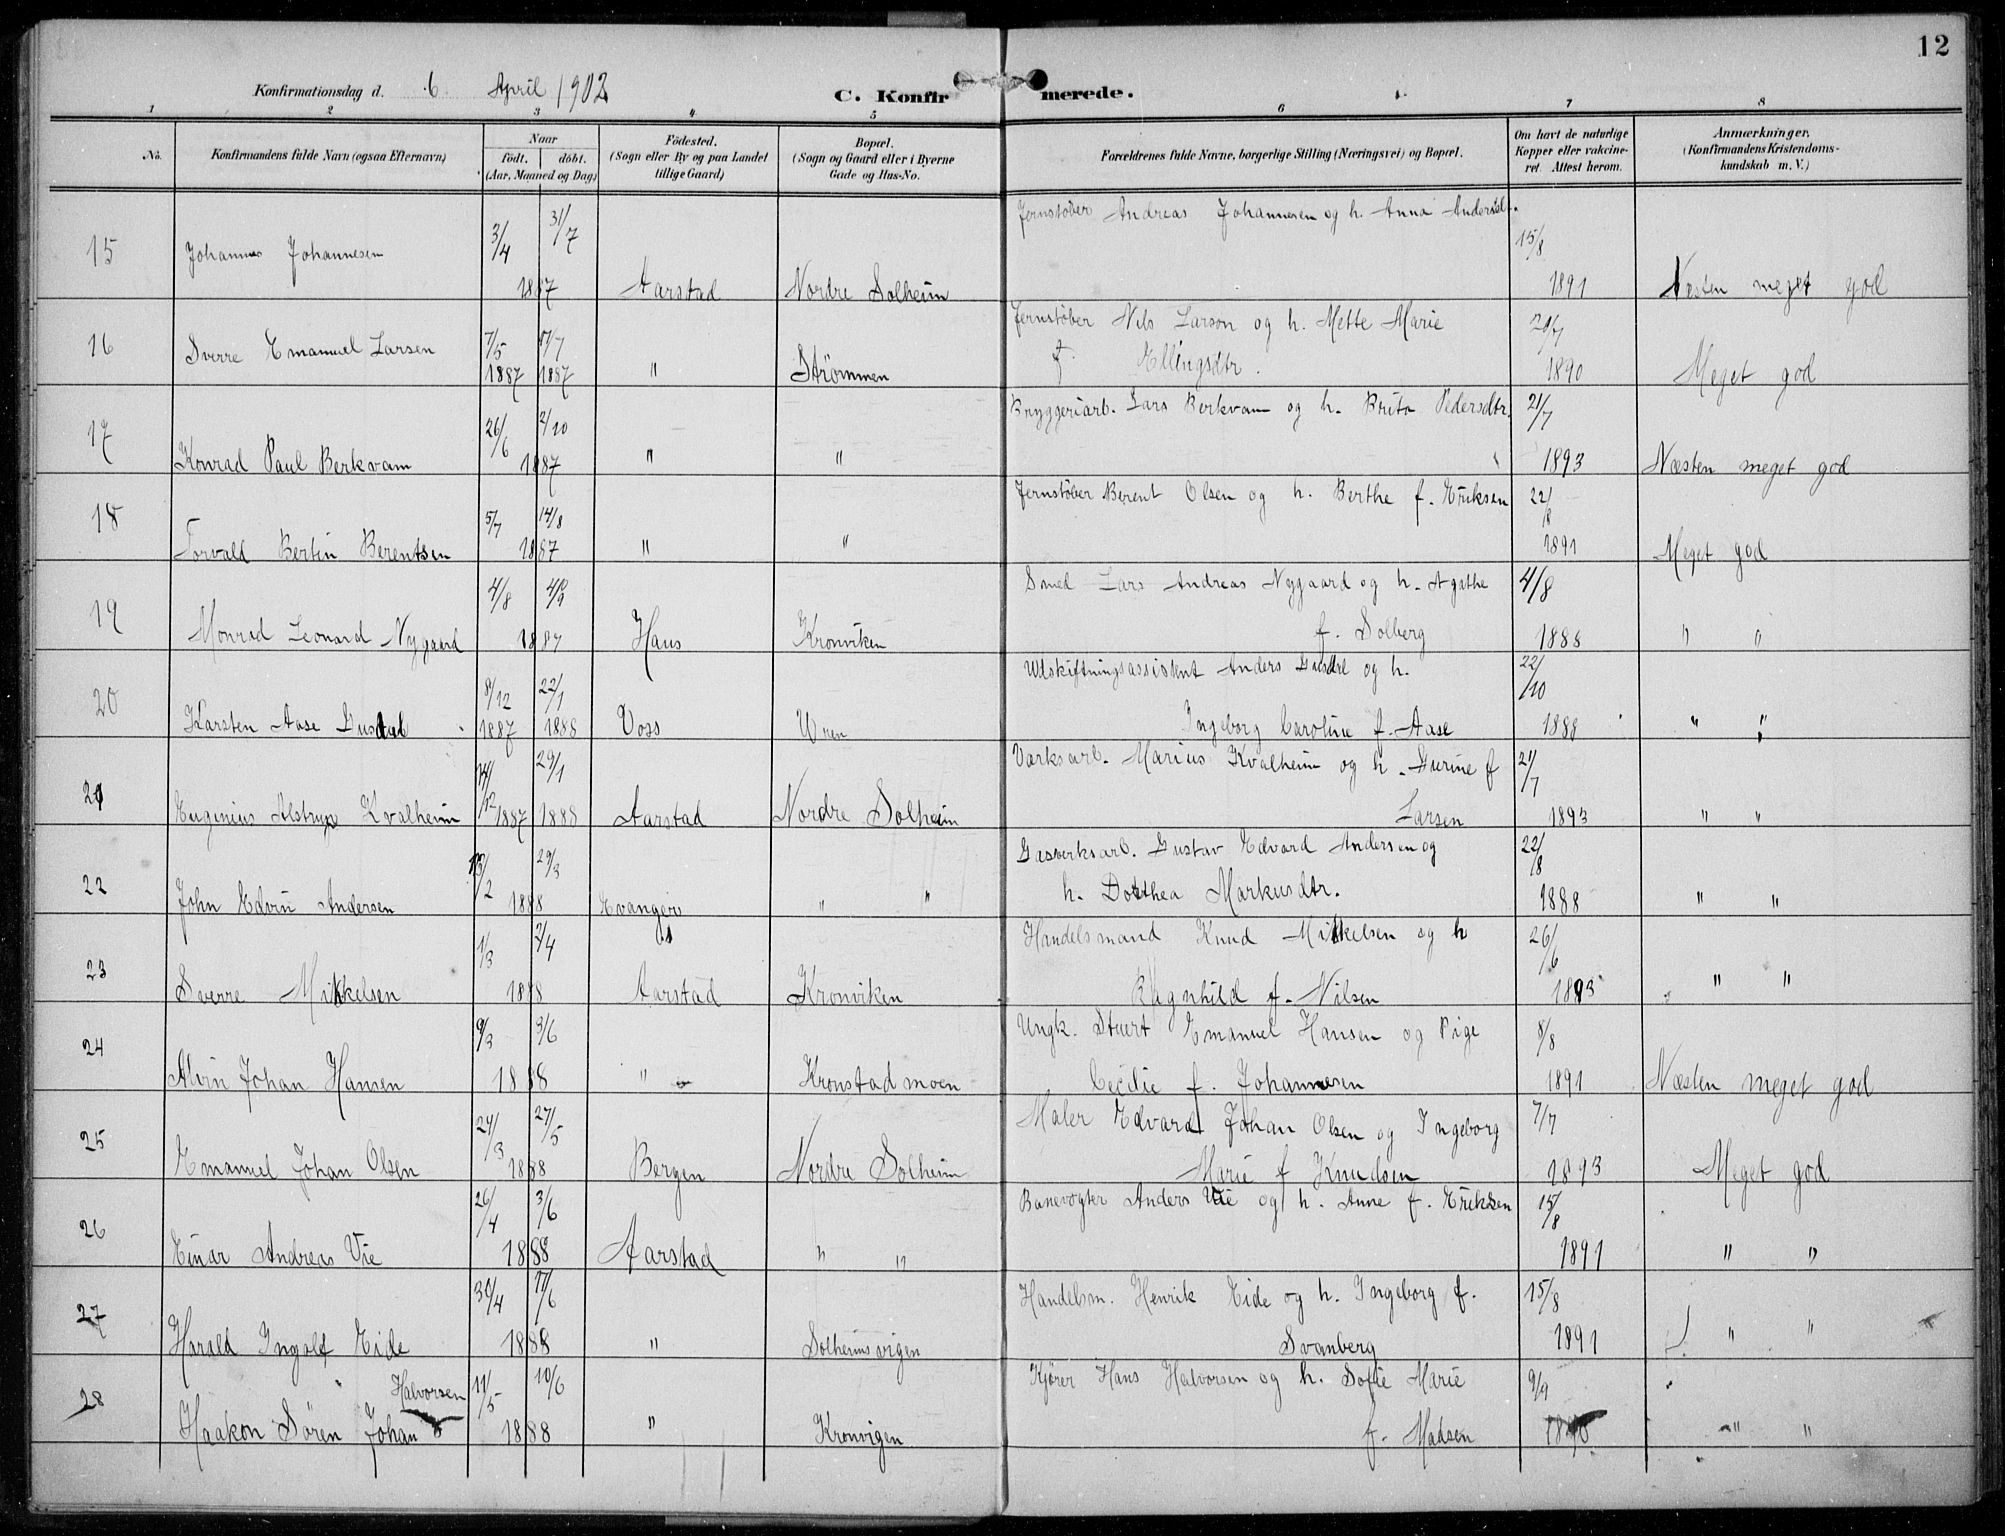 12
Konfirmationsdag d. 6 April 1902
C. Konfirmerede.
1 2 3 4 5 6 7 8
No.
Konfirmandens fulde Navn (ogsaa Efternavn)
Naar
født. døbt.
(Aar, Maaned og Dag)
Fødested.
(Sogn eller By og paa Landet
tillige Gaard)
Bopæl.
(Sogn og Gaard eller i Byerne
Gade og Hus-No.
Forældrenes fulde Navne, borgerlige Stilling (Næringsvei) og Bopæl.
Om havt de naturlige
Kopper eller vakcine-
ret. Attest herom.
Anmærkninger.
(Konfirmandens Kristendoms-
kundskab m. V.)
15 Johannes Johannesen 3/4 31/7 1887 Aarstad Nordre Solheim
Jernstøber Andreas Johannesen og h. Anna
15/8 1891 Næsten meget god
16 Sverre Emanuel Larsen 7/5 1887 1887 " Strømmen
Jernstøber Nils Larson og h. Mette Marie
f. Ellingsdtr.
1890 Meget god
17 Konrad Paul Berkvam 26/6 2/10 1887 " "
Bryggeriarb. Lars Berkvam og h. Brita Pedersdtr.
21/7 1893 Næsten meget god
18 Torvald Bertin Berentsen 5/7 14/8 1887 " "
Jernstøber Berent Olsen og h. Berthe f. Eriksen
22/8 1891 Meget god
19 Monrad Leonard Nygaard 4/8 1887 Haus Kronviken
Smed Lars Andreas Nygaard og h. Agathe
f. Solberg
4/8 1888 " "
20 Karsten Aase Gusdal 8/12 1887 22/1 1888 Voss
Utskiftningsassistent Anders og h.
Ingeborg Caroline f. Aase
22/10 1888 " "
21 Eugenius Kvalheim 1887 29/1 1888 Aarstad Nordre Solheim
Værksarb. Marius Kvalheim og h. Gurine f
Larsen
21/7 1893 " "
22 John Edvin Andersen 13/2 29/3 1888 Evanger " "
Gasverksarb. Gustav Edvard Andersen og
h. Dorthea Markusdtr.
22/8 1888 " "
23 Sverre Mikkelsen 1/3 2/4 1888 Aarstad Kronviken
Handelsmand Knud Mikkelsen og h
Ragnhild f. Nilsen
26/6 1893 " "
24 Alvin Johan Hansen 9/3 3/6 1888 " Kronstadmoen
Ungk. Stuert Emanuel Hansen og Pige
Cecilie f. Johannesen
8/8 1891 Næsten meget god
25 Emanuel Johan Olsen 24/3 27/5 1888 Bergen Nordre Solheim
Maler Edvard Johan Olsen og Ingeborg
Marie f Knudsen
7/7 1893 Meget god
26 Einar Andreas Vie 26/4 3/6 1888 Aarstad " "
Banevogter Anders Vie og h. Anne f. Eriksen
15/8 1891 " "
27 Harald Ingolf Eide 30/4 17/6 1888 " Solheimsvigen
Handelsm. Henrik Eide og h. Ingeborg f.
Svanberg
15/8 1891 " "
28 Haakon Søren Johan Halvorsen 11/5 10/6 1888 " Kronvigen
Kjører Hans Halvorsen og h. Sofie Marie
f. Madsen
9/9 " "